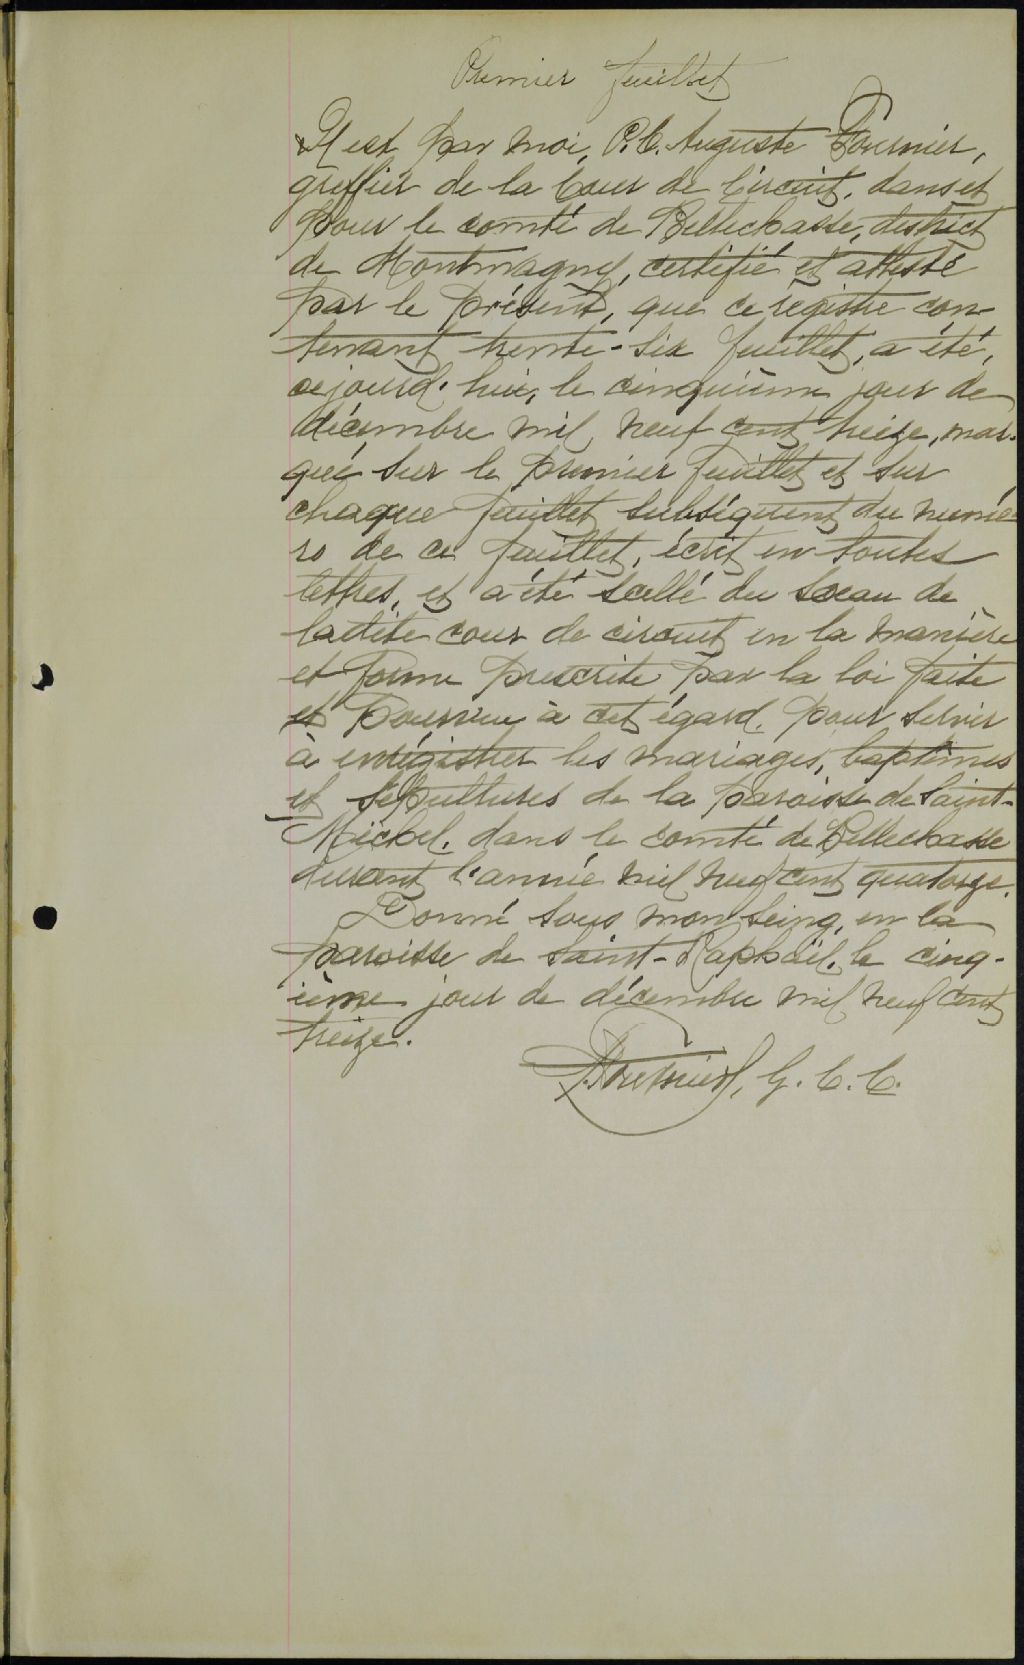 Premier feuillet
Il est par moi, P. C. Auguste Fournier,
greffier de la Cour de Circuit, dans et
pour le comté de Bellechasse, district
de Montmagny, certifié et attesté
par le présent, que ce régistre con-
tenant trente-six feuillet, a été,
cejourd'hui, le cinquième jour de
décembre mil neuf cent treize, mar-
qué sur le premier feuillet et sur
chaque feuillet subséquent du numé-
ro de ce feuillet, écrit en toutes
lettres, et a été scellé du sceau de
ladite cour de circuit en la manière
et forme prescrite par la loi faite
et pourvue à cet égard, pour servir
à enrégistrer les mariages, baptêmes
et sépultures de la paroisse de Saint-
Michel, dans le comté de Bellechasse
durant l'année mil neuf cent quatorze.
Donné sous mon seing, en la
paroisse de Saint-Raphaël, le cinq-
ième jour de décembre mil neuf cent
treize.
Fournier, G. C. C.